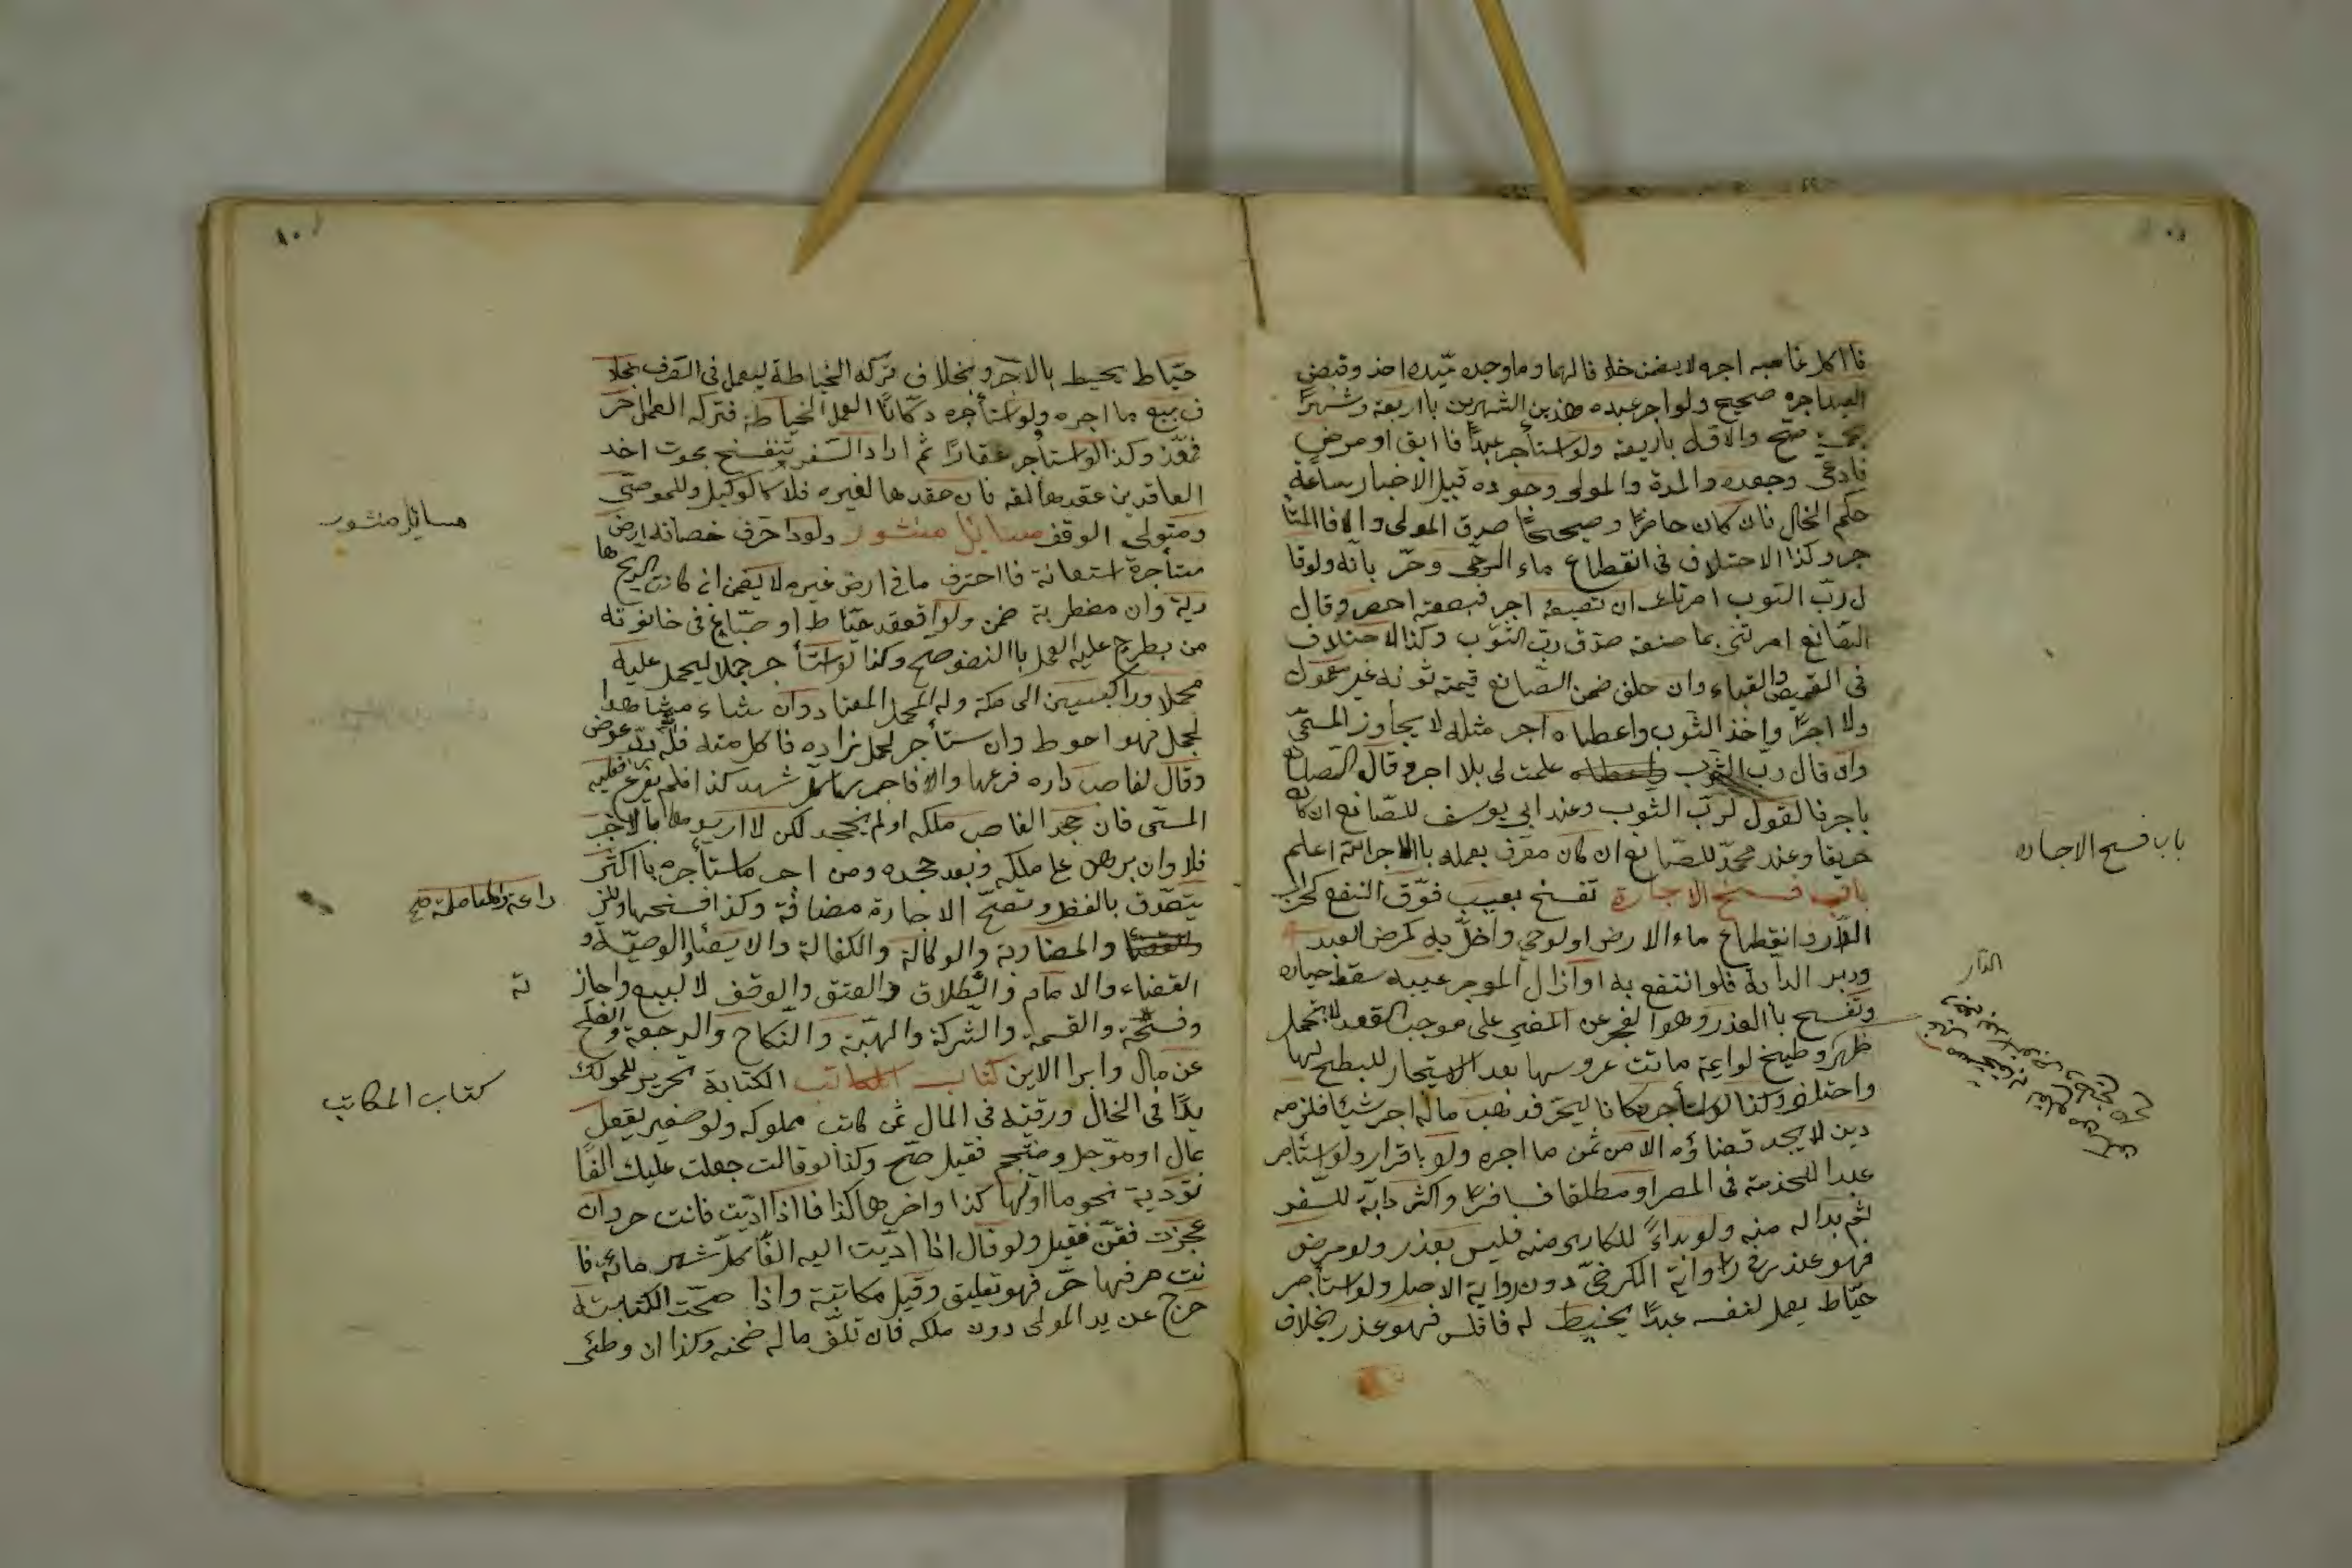 فااكل غاصبه اجره لا يضمن خلافا لهما وما وجده سيّده اخذ وقبض
العبد اجره صحيح ولو اجر عبده هذين الشهرين باربعة وشهرًا
بخمسة صحّ والاوّل باربعة ولو استأجر عبدًا فاابق او مرض
فادعى وجوده والمدة والمولى وجوده قبيل الاخبار ساعة
حكم الحال فان كان حاضرًا وصحيحًا صدق المولى والا فالمستأ
جر وكذا الاختلاف في انقطاع ماء الرحى وجرّ بانه ولو قا
ل ربّ الثوب امرتك ان تصبغه احمر فصبغته اصفر وقال
الصّانع امرتنى بما صنعته صدّق ربّ الثوب وكذا الاختلاف
في القميص والقباء وان حلف ضمن الصّانع قيمة ثوبه غير معمول
ولا اجرًا واخذ الثوب واعطاه اجر مثله لا يجاوز المسمّى
وان قال ربّ الثوب علمت لي بلا اجر وقال الصانع
باجر فالقول لربّ الثوب وعند ابي يوسف للصّانع ان كان
حريفا وعند محمدّ للصانع ان كان معرف بعمله باالاجر الله اعلم
باب فسخ الاجارة تفسخ بعيب فوّت النفع كخراب
الدّار وانقطاع ماء الارض او الرحي واخلّ به كمرض العبد
ودبر الدابة فلو انتفع به او ازال الموجر عيبه سقط خياره
وتفسخ باالعذر وهو العجز عن المضي على موجب العقد لا بتحمل
واختلعت وكذا لو استأجر دكانا ليتجر فذهب ماله او اجر شيئا فلزمه
دين لا يجد قضاؤه الا من ثمن ما اجره ولو باقرار ولو استأجر
عبدا للخدمة في المصر او مطلقا فسافرًا واكترى دابّة للسّفر
ثم بدا له منه ولو بداءً للمكاري منه فليس بعذر ولو مرض
فهو عذر في رواية الكرخيّ دون رواية الاصل ولو استأجر
خيّاط يعمل لنفسه عبدًا يخيط له فافلس فهو عذر بخلاف
باب فسخ الاجاره
الدّار
خيّاط يخيط بالاجر وبخلاف تركه الخياطة ليعمل في الصّرف بخلا
ف بيع ما اجره ولو استأجره دكّانًا العمل الخياطة فتركه العمل اخر
فعذّر وكذا لو استأجر عقارًا ثم اراد السّفر وتنفسخ بموت احد
العاقدين عقدها لنفسه فان عقدها لغيره فلا كالوكيل والموصي
ومتولي الوقف مسايل منثور ولو احرق حصائد ارض
مستأجرة او استعانة فااحترق ما في ارض غيره لا يضمن ان كانت الريح ها
دية وان مضطربة ضمن ولو اقعد خيّاط او صبّاغ في حانوته
من يطرح عليه العمل باالنصف صح وكذا لو استأجر جملا ليحمل عليه
محملا وراكبين الى مكة وله المحمل المعتاد وان شاء مشاهدا
لجمل فهو احوط وان ستأجر لحمل زاده فاكل منه فله ردّ عوض
وقال لغاصب داره فرغها والا فاجرتها كل شهر بكذا فلم يفرغ فعليه
المسمّى فان جحد الغاصب ملكه او لم يجحد لكن لا اريدها بالاجر
فلا وان برهن على ملكه وبعد جحده ومن اجر ما استأجره باكثر
يتصّدق بالفضل وتصحّ الاجارة مضافة وكذا فسخها والمز
والمضاربة والوكالة والكفالة والايصاء والوصيّة و
القضاء والامام والطّلاق والعتق والوقف لا البيع واجاز
وفسخه والقسمة والشركة والهبّة والنكاح والرجعة والصلح
عن مال وابرا الدين كتاب المكاتب الكتابة تحرير المملوك
يدًا في الحال ورقبة في المال من كاتب مملوكه ولو صغير يعقل
بمال او مؤجل ومنجم فقبل صحّ وكذا لو قالت جعلت عليك الفًا
تؤديه نجوما اولها كذا واخرها كذا فااذا ادّيت فانت حر وان
عجزت فقنّ فقبل ولو قال اذا ادّيت اليه الفًا كل شهر مائة فا
نت حر فهو تعليق وقيل مكاتبة واذا صحّت الكتابة
خرج عن يد المولى دون ملكه فان تلف ماله ضمنه وكذا ان وطئى
مسايل منثور
راعة والمعاملة صح
ته
كتاب المكاتب